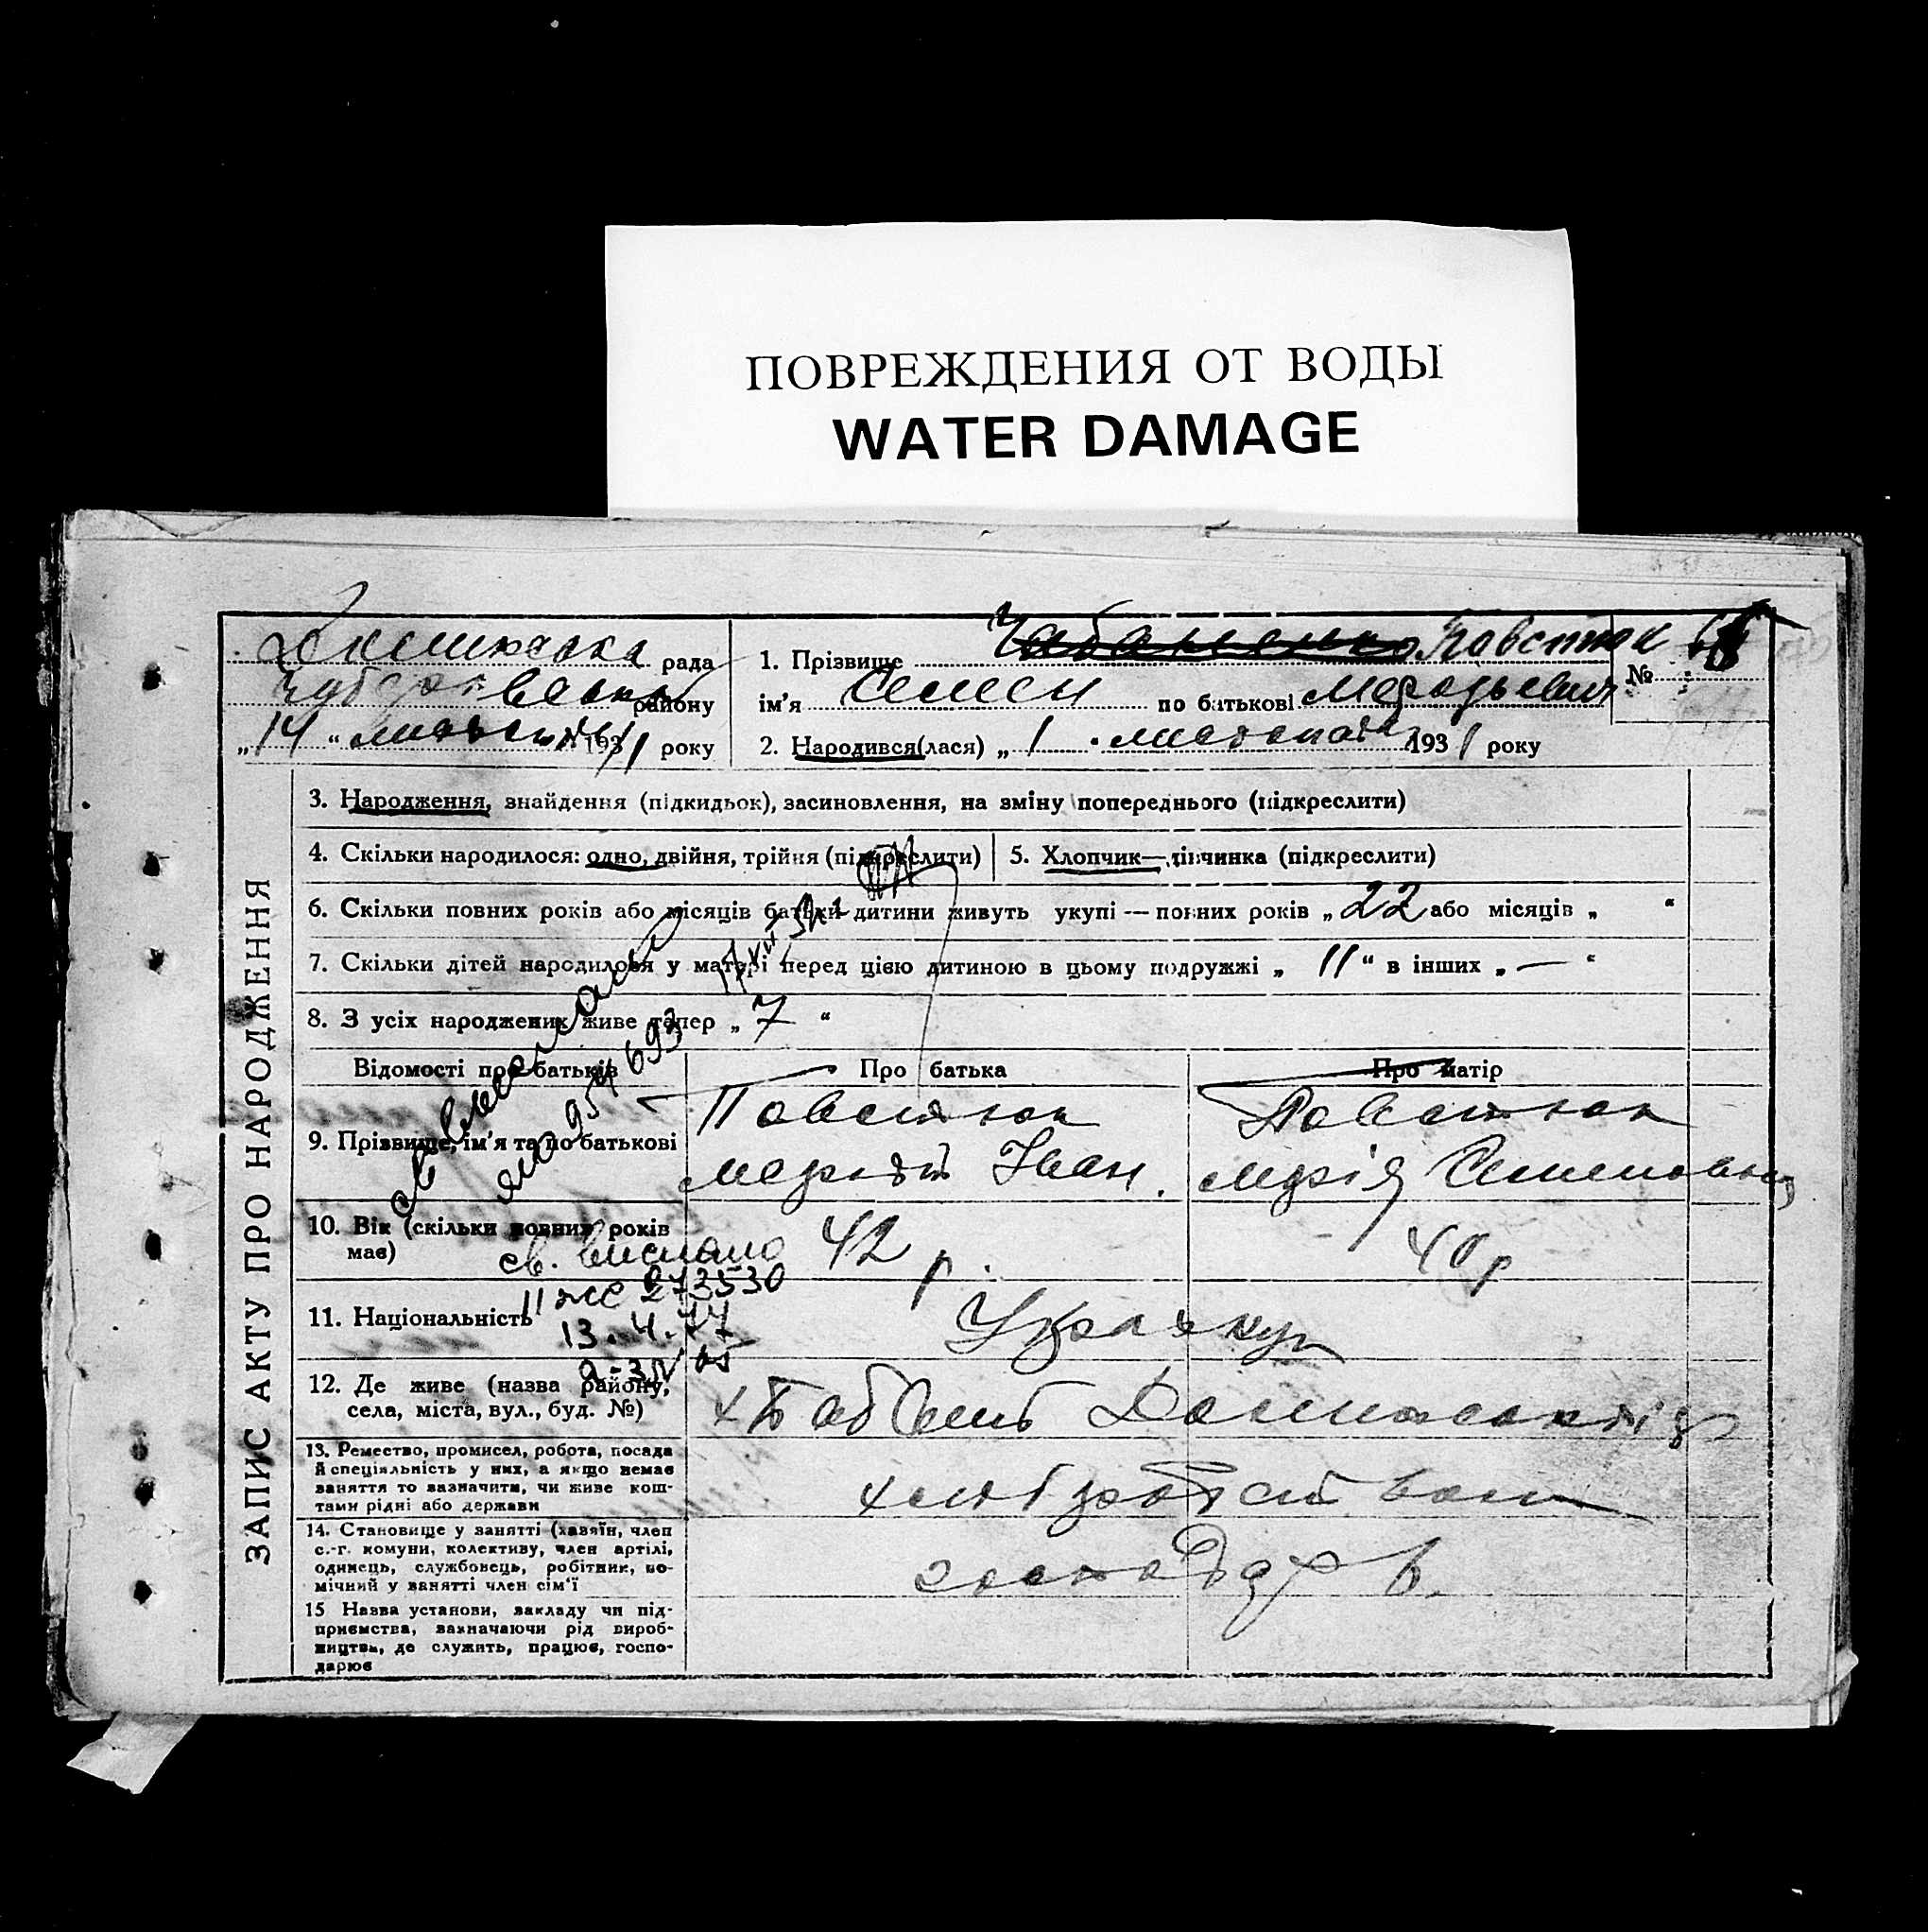 ПОВРЕЖДЕНИЯ ОТ ВОДЫ
WATER DAMAGE
ЗАПИС АКТУ ПРО НАРОДЖЕННЯ
рада
району
„14“ 1931 року
1. Прізвище Чабаненко Повстюк
№
ім'я Семен по батькові
2. Народився(лася) „1 листопада 1931 року
3. Народження, знайдення (підкидьок), засиновлення, на зміну попереднього (підкреслити)
4. Скільки народилося: одно, двійня, трійня (підкреслити)
5. Хлопчик—дівчинка (підкреслити)
6. Скільки повних років або місяців батьки дитини живуть укупі — повних років „22 або місяців „ “
7. Скільки дітей народилося у матері перед цією дитиною в цьому подружжі „ 11 “ в інших „ — “
8. З усіх народжених живе тепер „ 7 “
Відомості про батьків
Про батька
Про матір
9. Прізвище, ім'я та по батькові
Повстюк
Іван.
Повстюк
Марія Семеновна
10. Вік (скільки повних років має)
42 р.
40 р
св. вислано
II же 273530
13.4.77
11. Національність
12. Де живе (назва району,
села, міста, вул., буд. №)
13. Ремество, промисел, робота, посада
й спеціяльність у них, а якщо немає
заняття то зазначити, чи живе кош-
тами рідні або держави
14. Становище у занятті (хазяїн, член
с.-г. комуни, колективу, член артілі,
одинець, службовець, робітник, по-
мічний у занятті член сім'ї
15 Назва установи, закладу чи під-
приємства, зазначаючи рід вироб-
ництва, де служить, працює, госпо-
дарює